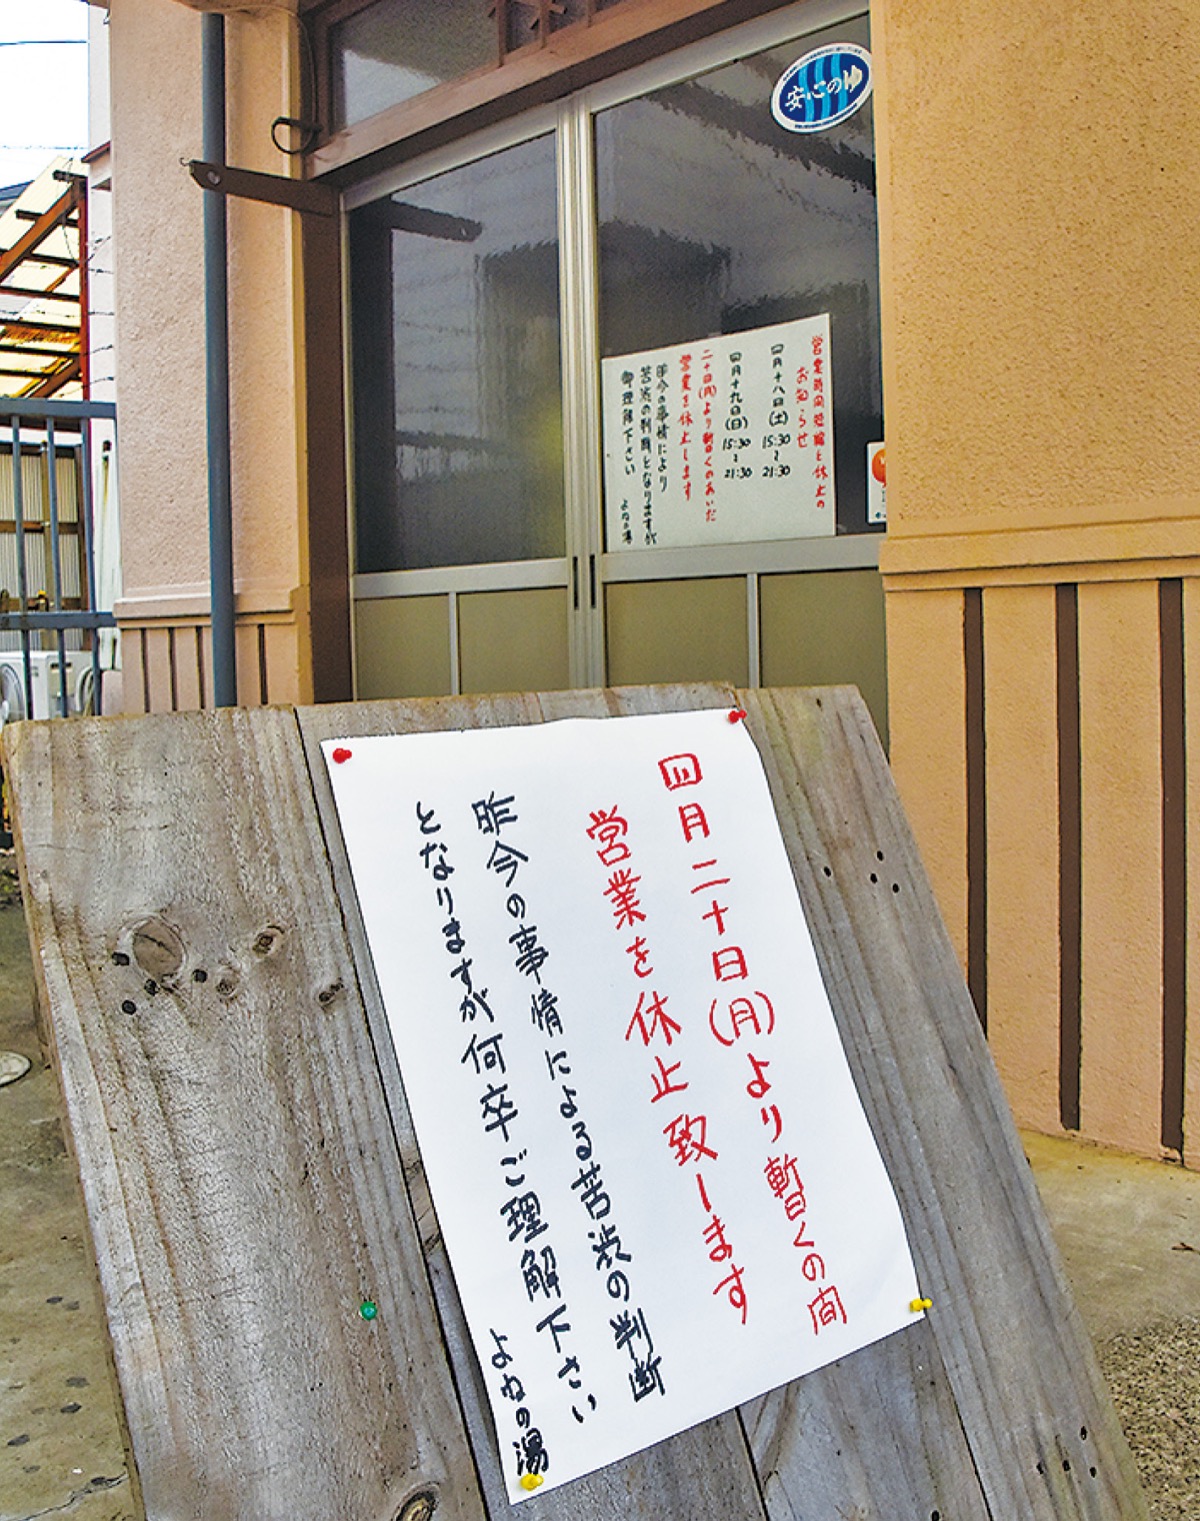 安心のゆ
営業時間短縮と休止の
お知らせ
四月十八日(土) 15:30~21:30
四月十九日(日) 15:30~21:30
二十日(月)より暫くのあいだ
営業を休止します
昨今の事情により
苦渋の判断となりますが
御理解下さい よねの湯
四月二十日(月)より暫くの间
営業を休止致します
昨今の事情による苦渋の判断
となりますが何卒ご理解下さい
よねの湯